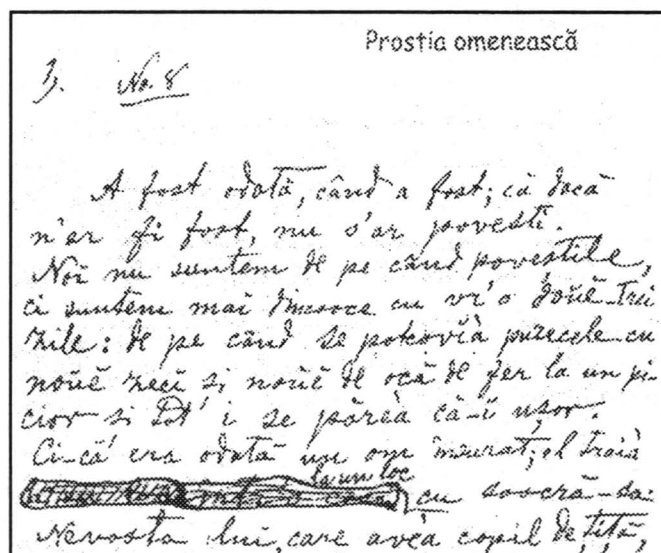 Prostia omenească
No. 8
A fost odată, când a fost; că dacă
n'ar fi fost, nu s'ar povesti.
Noi nu suntem de pe când poveștile,
ci suntem mai dincoace cu vr'o douĕ-trei
zile: de pe când se potcovià puricele cu
nouĕ zeci și nouĕ de ocă de fer la un pi-
cior și tot i se părea că-i ușor.
Ci-că era odată un om însurat; el traià
la un loc
cu soacră-sa.
Nevasta lui, care aveà copil de țîță,